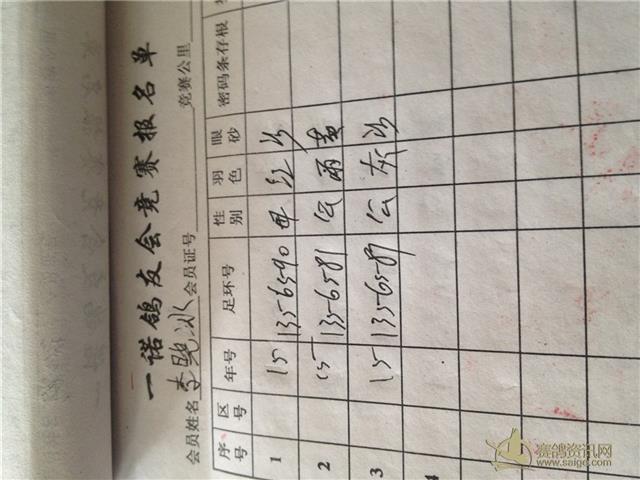 一诺鸽友会竞赛报名单
会员姓名 李晓冰 会员证号 竞赛公里
序号 区号 年号 足环号 性别 羽色 眼砂 密码条存根
1 15 1356590 母 红 沙
2 15 1356581 公 雨 黄
3 15 1356587 公 灰 沙
4
赛鸽资讯网
www.saige.com